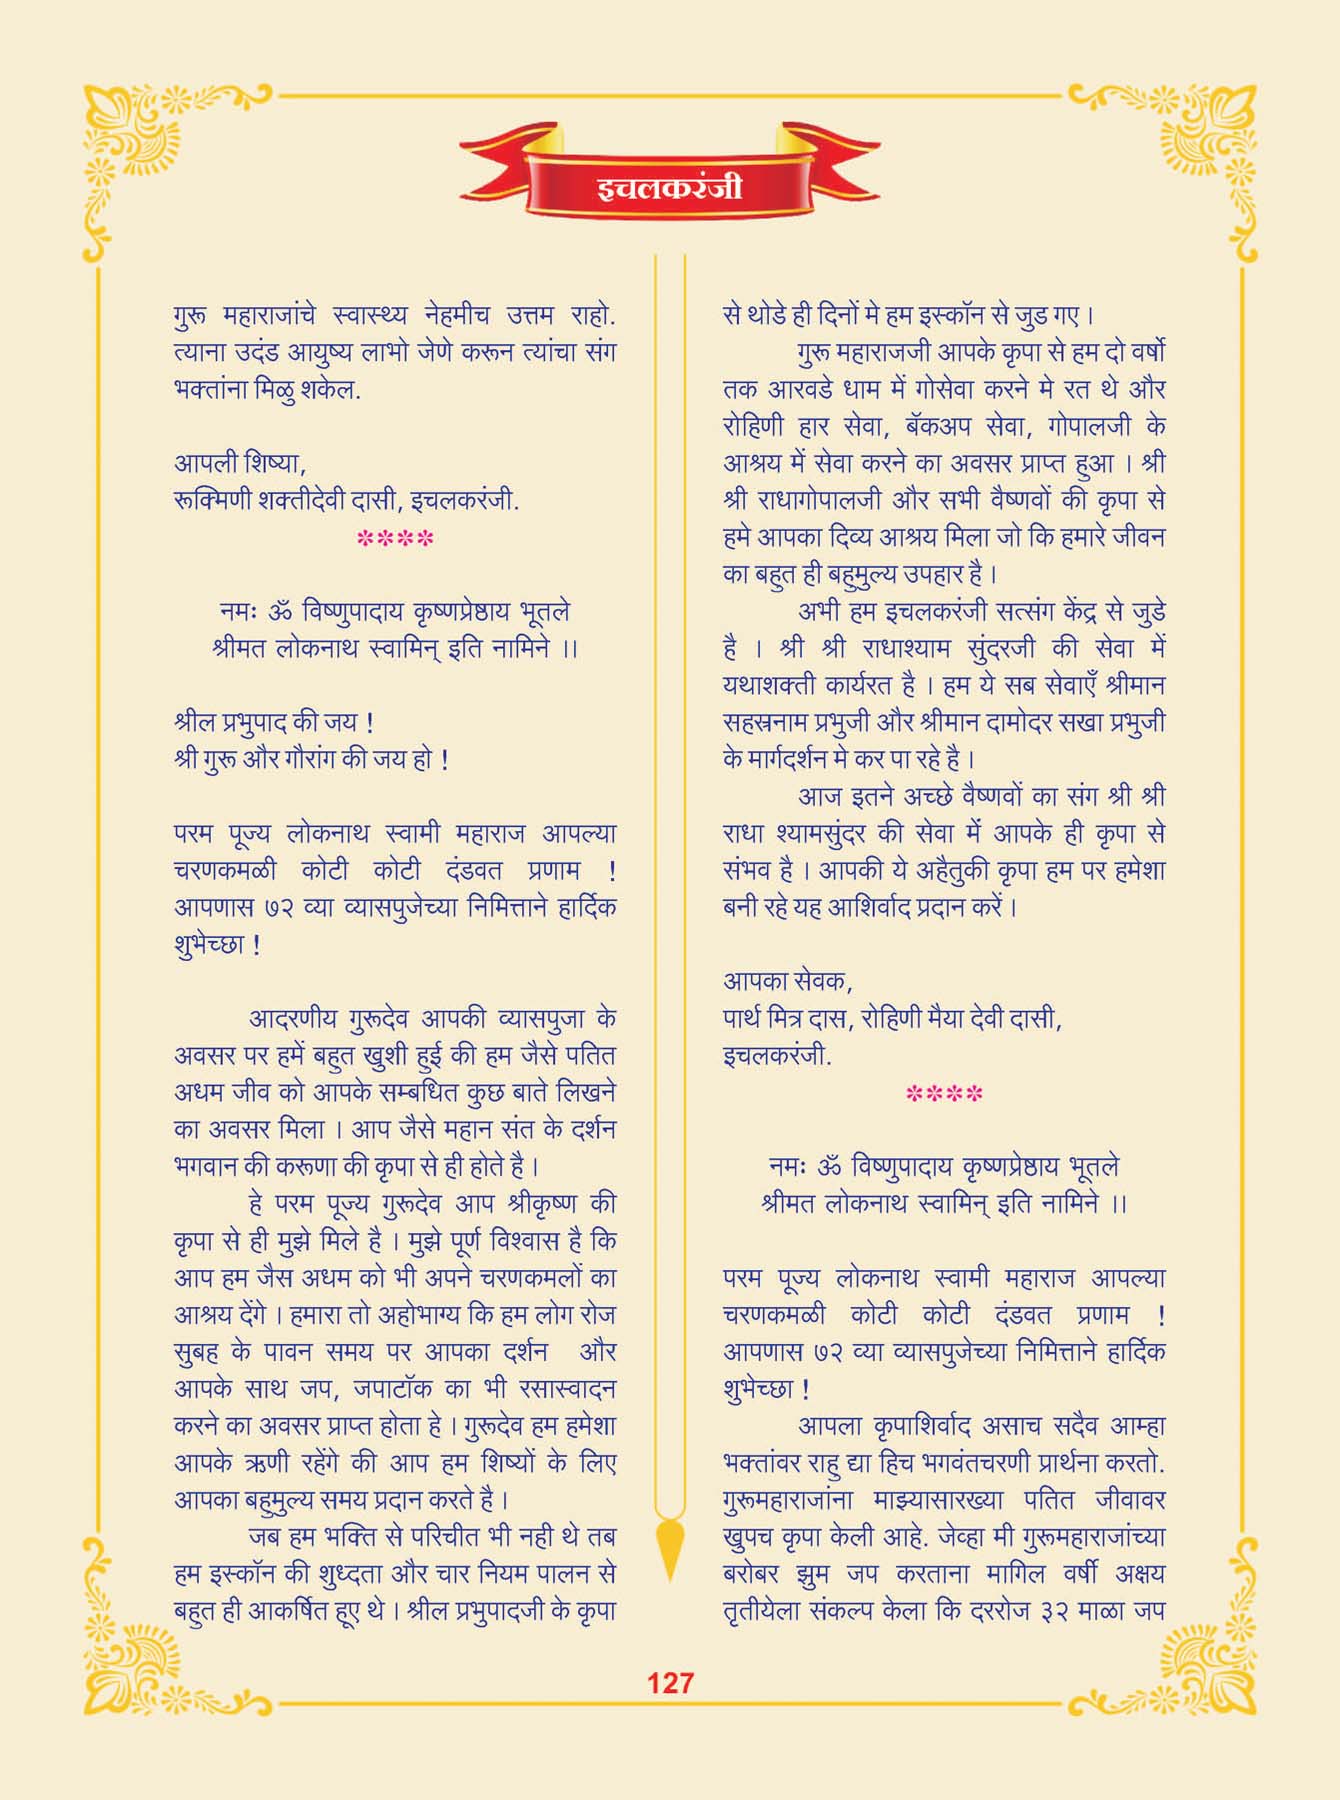 इचलकरंजी
गुरू महाराजांचे स्वास्थ्य नेहमीच उत्तम राहो.
त्याना उदंड आयुष्य लाभो जेणे करून त्यांचा संग
भक्तांना मिळु शकेल.
आपली शिष्या,
रूक्मिणी शक्तीदेवी दासी, इचलकरंजी.
****
नमः ॐ विष्णुपादाय कृष्णप्रेष्ठाय भूतले
श्रीमत लोकनाथ स्वामिन् इति नामिने ।।
श्रील प्रभुपाद की जय !
श्री गुरू और गौरांग की जय हो !
परम पूज्य लोकनाथ स्वामी महाराज आपल्या
चरणकमळी कोटी कोटी दंडवत प्रणाम !
आपणास ७२ व्या व्यासपुजेच्या निमित्ताने हार्दिक
शुभेच्छा !
आदरणीय गुरूदेव आपकी व्यासपुजा के
अवसर पर हमें बहुत खुशी हुई की हम जैसे पतित
अधम जीव को आपके सम्बधित कुछ बाते लिखने
का अवसर मिला । आप जैसे महान संत के दर्शन
भगवान की करूणा की कृपा से ही होते है ।
हे परम पूज्य गुरूदेव आप श्रीकृष्ण की
कृपा से ही मुझे मिले है । मुझे पूर्ण विश्वास है कि
आप हम जैस अधम को भी अपने चरणकमलों का
आश्रय देंगे । हमारा तो अहोभाग्य कि हम लोग रोज
सुबह के पावन समय पर आपका दर्शन और
आपके साथ जप, जपाटॉक का भी रसास्वादन
करने का अवसर प्राप्त होता हे । गुरूदेव हम हमेशा
आपके ऋणी रहेंगे की आप हम शिष्यों के लिए
आपका बहुमुल्य समय प्रदान करते है ।
जब हम भक्ति से परिचीत भी नही थे तब
हम इस्कॉन की शुध्दता और चार नियम पालन से
बहुत ही आकर्षित हूए थे । श्रील प्रभुपादजी के कृपा
से थोडे ही दिनों मे हम इस्कॉन से जुड गए ।
गुरू महाराजजी आपके कृपा से हम दो वर्षो
तक आरवडे धाम में गोसेवा करने मे रत थे और
रोहिणी हार सेवा, बॅकअप सेवा, गोपालजी के
आश्रय में सेवा करने का अवसर प्राप्त हुआ । श्री
श्री राधागोपालजी और सभी वैष्णवों की कृपा से
हमे आपका दिव्य आश्रय मिला जो कि हमारे जीवन
का बहुत ही बहुमुल्य उपहार है ।
अभी हम इचलकरंजी सत्संग केंद्र से जुडे
है । श्री श्री राधाश्याम सुंदरजी की सेवा में
यथाशक्ती कार्यरत है । हम ये सब सेवाएँ श्रीमान
सहस्रनाम प्रभुजी और श्रीमान दामोदर सखा प्रभुजी
के मार्गदर्शन मे कर पा रहे है ।
आज इतने अच्छे वैष्णवों का संग श्री श्री
राधा श्यामसुंदर की सेवा में आपके ही कृपा से
संभव है । आपकी ये अहैतुकी कृपा हम पर हमेशा
बनी रहे यह आशिर्वाद प्रदान करें ।
आपका सेवक,
पार्थ मित्र दास, रोहिणी मैया देवी दासी,
इचलकरंजी.
****
नमः ॐ विष्णुपादाय कृष्णप्रेष्ठाय भूतले
श्रीमत लोकनाथ स्वामिन् इति नामिने ।।
परम पूज्य लोकनाथ स्वामी महाराज आपल्या
चरणकमळी कोटी कोटी दंडवत प्रणाम !
आपणास ७२ व्या व्यासपुजेच्या निमित्ताने हार्दिक
शुभेच्छा !
आपला कृपाशिर्वाद असाच सदैव आम्हा
भक्तांवर राहु द्या हिच भगवंतचरणी प्रार्थना करतो.
गुरूमहाराजांना माझ्यासारख्या पतित जीवावर
खुपच कृपा केली आहे. जेव्हा मी गुरूमहाराजांच्या
बरोबर झुम जप करताना मागिल वर्षी अक्षय
तृतीयेला संकल्प केला कि दररोज ३२ माळा जप
127